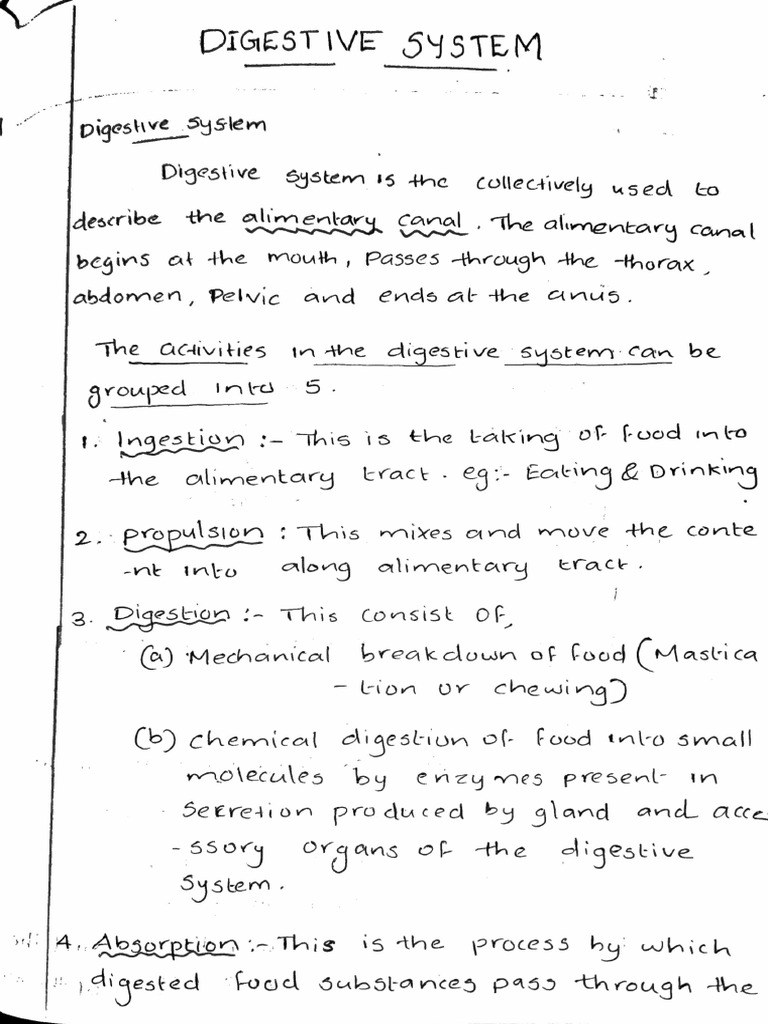 DIGESTIVE SYSTEM
Digestive system
Digestive system is the collectively used to
describe the alimentary canal. The alimentary canal
begins at the mouth, Passes through the thorax,
abdomen, Pelvic and ends at the anus.
The activities in the digestive system can be
grouped into 5.
1. Ingestion :- This is the taking of food into
the alimentary tract. eg:- Eating & Drinking
2. propulsion : This mixes and move the conte
-nt into along alimentary tract.
3. Digestion :- This consist of,
(a) Mechanical breakdown of food (Mastica
-tion or chewing)
(b) chemical digestion of food into small
molecules by enzymes present in
Secretion produced by gland and acce
-ssory organs of the digestive
System.
4. Absorption :- This is the process by which
digested food substances pass through the